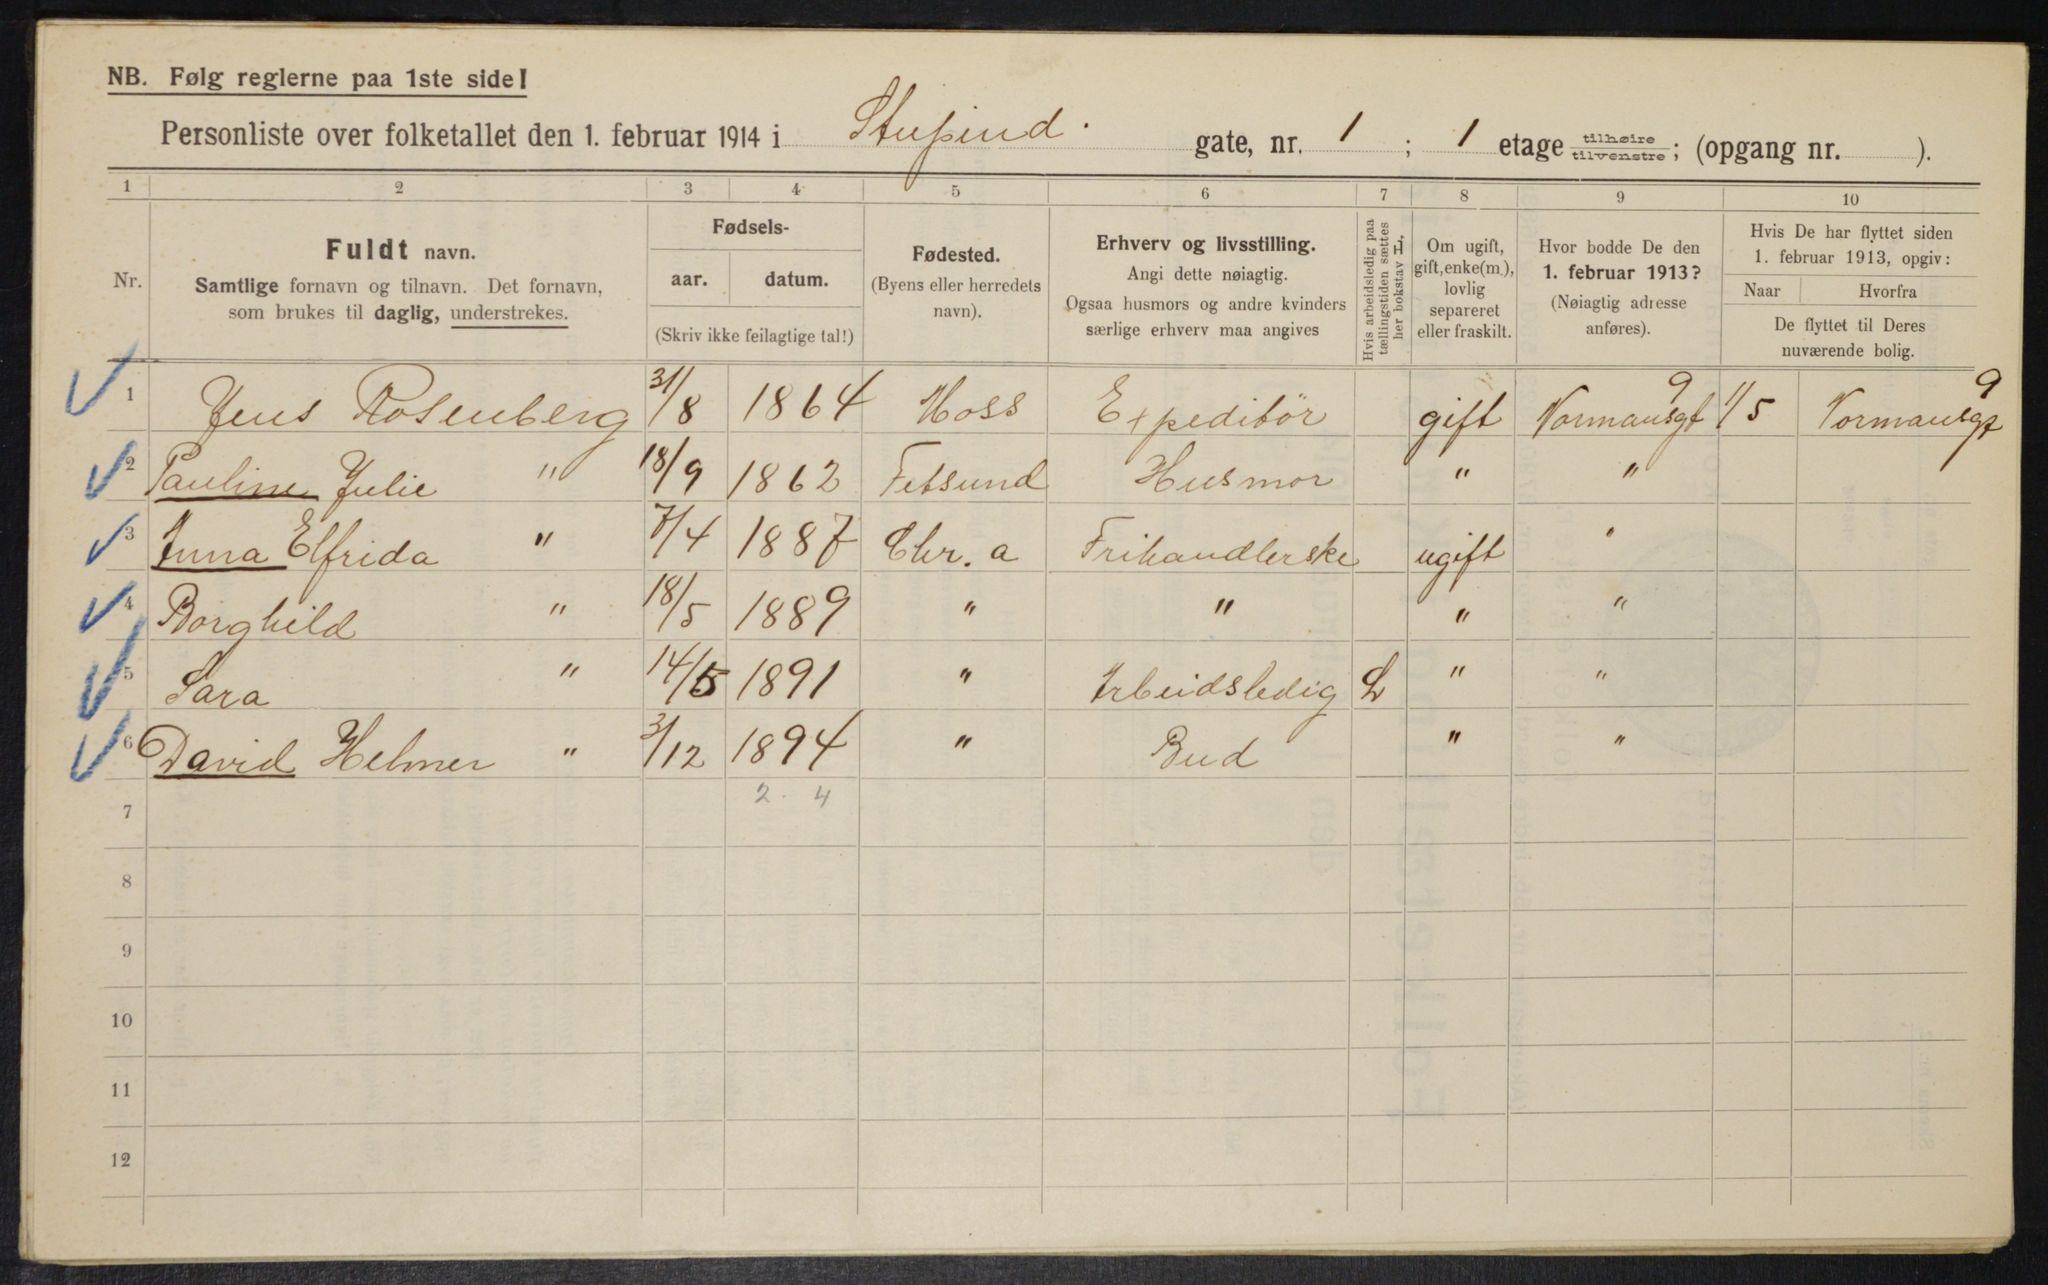 NB. Følg reglerne paa 1ste side!
Personliste over folketallet den 1. februar 1914 i Stupind. gate, nr. 1 ; 1 etage tilhøire tilvenstre ; (opgang nr. ).
1 2 3 4 5 6 7 8 9 10
Nr.
Fuldt navn.
Samtlige fornavn og tilnavn. Det fornavn,
som brukes til daglig, understrekes.
Fødsels-
aar. datum.
(Skriv ikke feilagtige tal!)
Fødested.
(Byens eller herredets
navn).
Erhverv og livsstilling.
Angi dette nøiagtig.
Ogsaa husmors og andre kvinders
særlige erhverv maa angives
Hvis arbeidsledig paa
tællingstiden sættes
her bokstav L,
Om ugift,
gift, enke(m.),
lovlig
separeret
eller fraskilt.
Hvor bodde De den
1. februar 1913?
(Nøiagtig adresse
anføres).
Hvis De har flyttet siden
1. februar 1913, opgiv:
Naar Hvorfra
De flyttet til Deres
nuværende bolig.
1 Jens Rosenberg 31/8 1864 Moss Expeditør gift Normansgt 9 1/5 Normansgt 9
2 Pauline Julie " 18/9 1862 Fetsund Husmor " "
3 Anna Elfrida " 7/4 1887 Chr. a Frihandlerske ugift "
4 Borghild " 18/5 1889 " " " "
5 Sara " 14/5 1891 " Arbeidsledig L " "
6 David Helmer " 3/12 1894 " Bud " "
2. 4
7
8
9
10
11
12